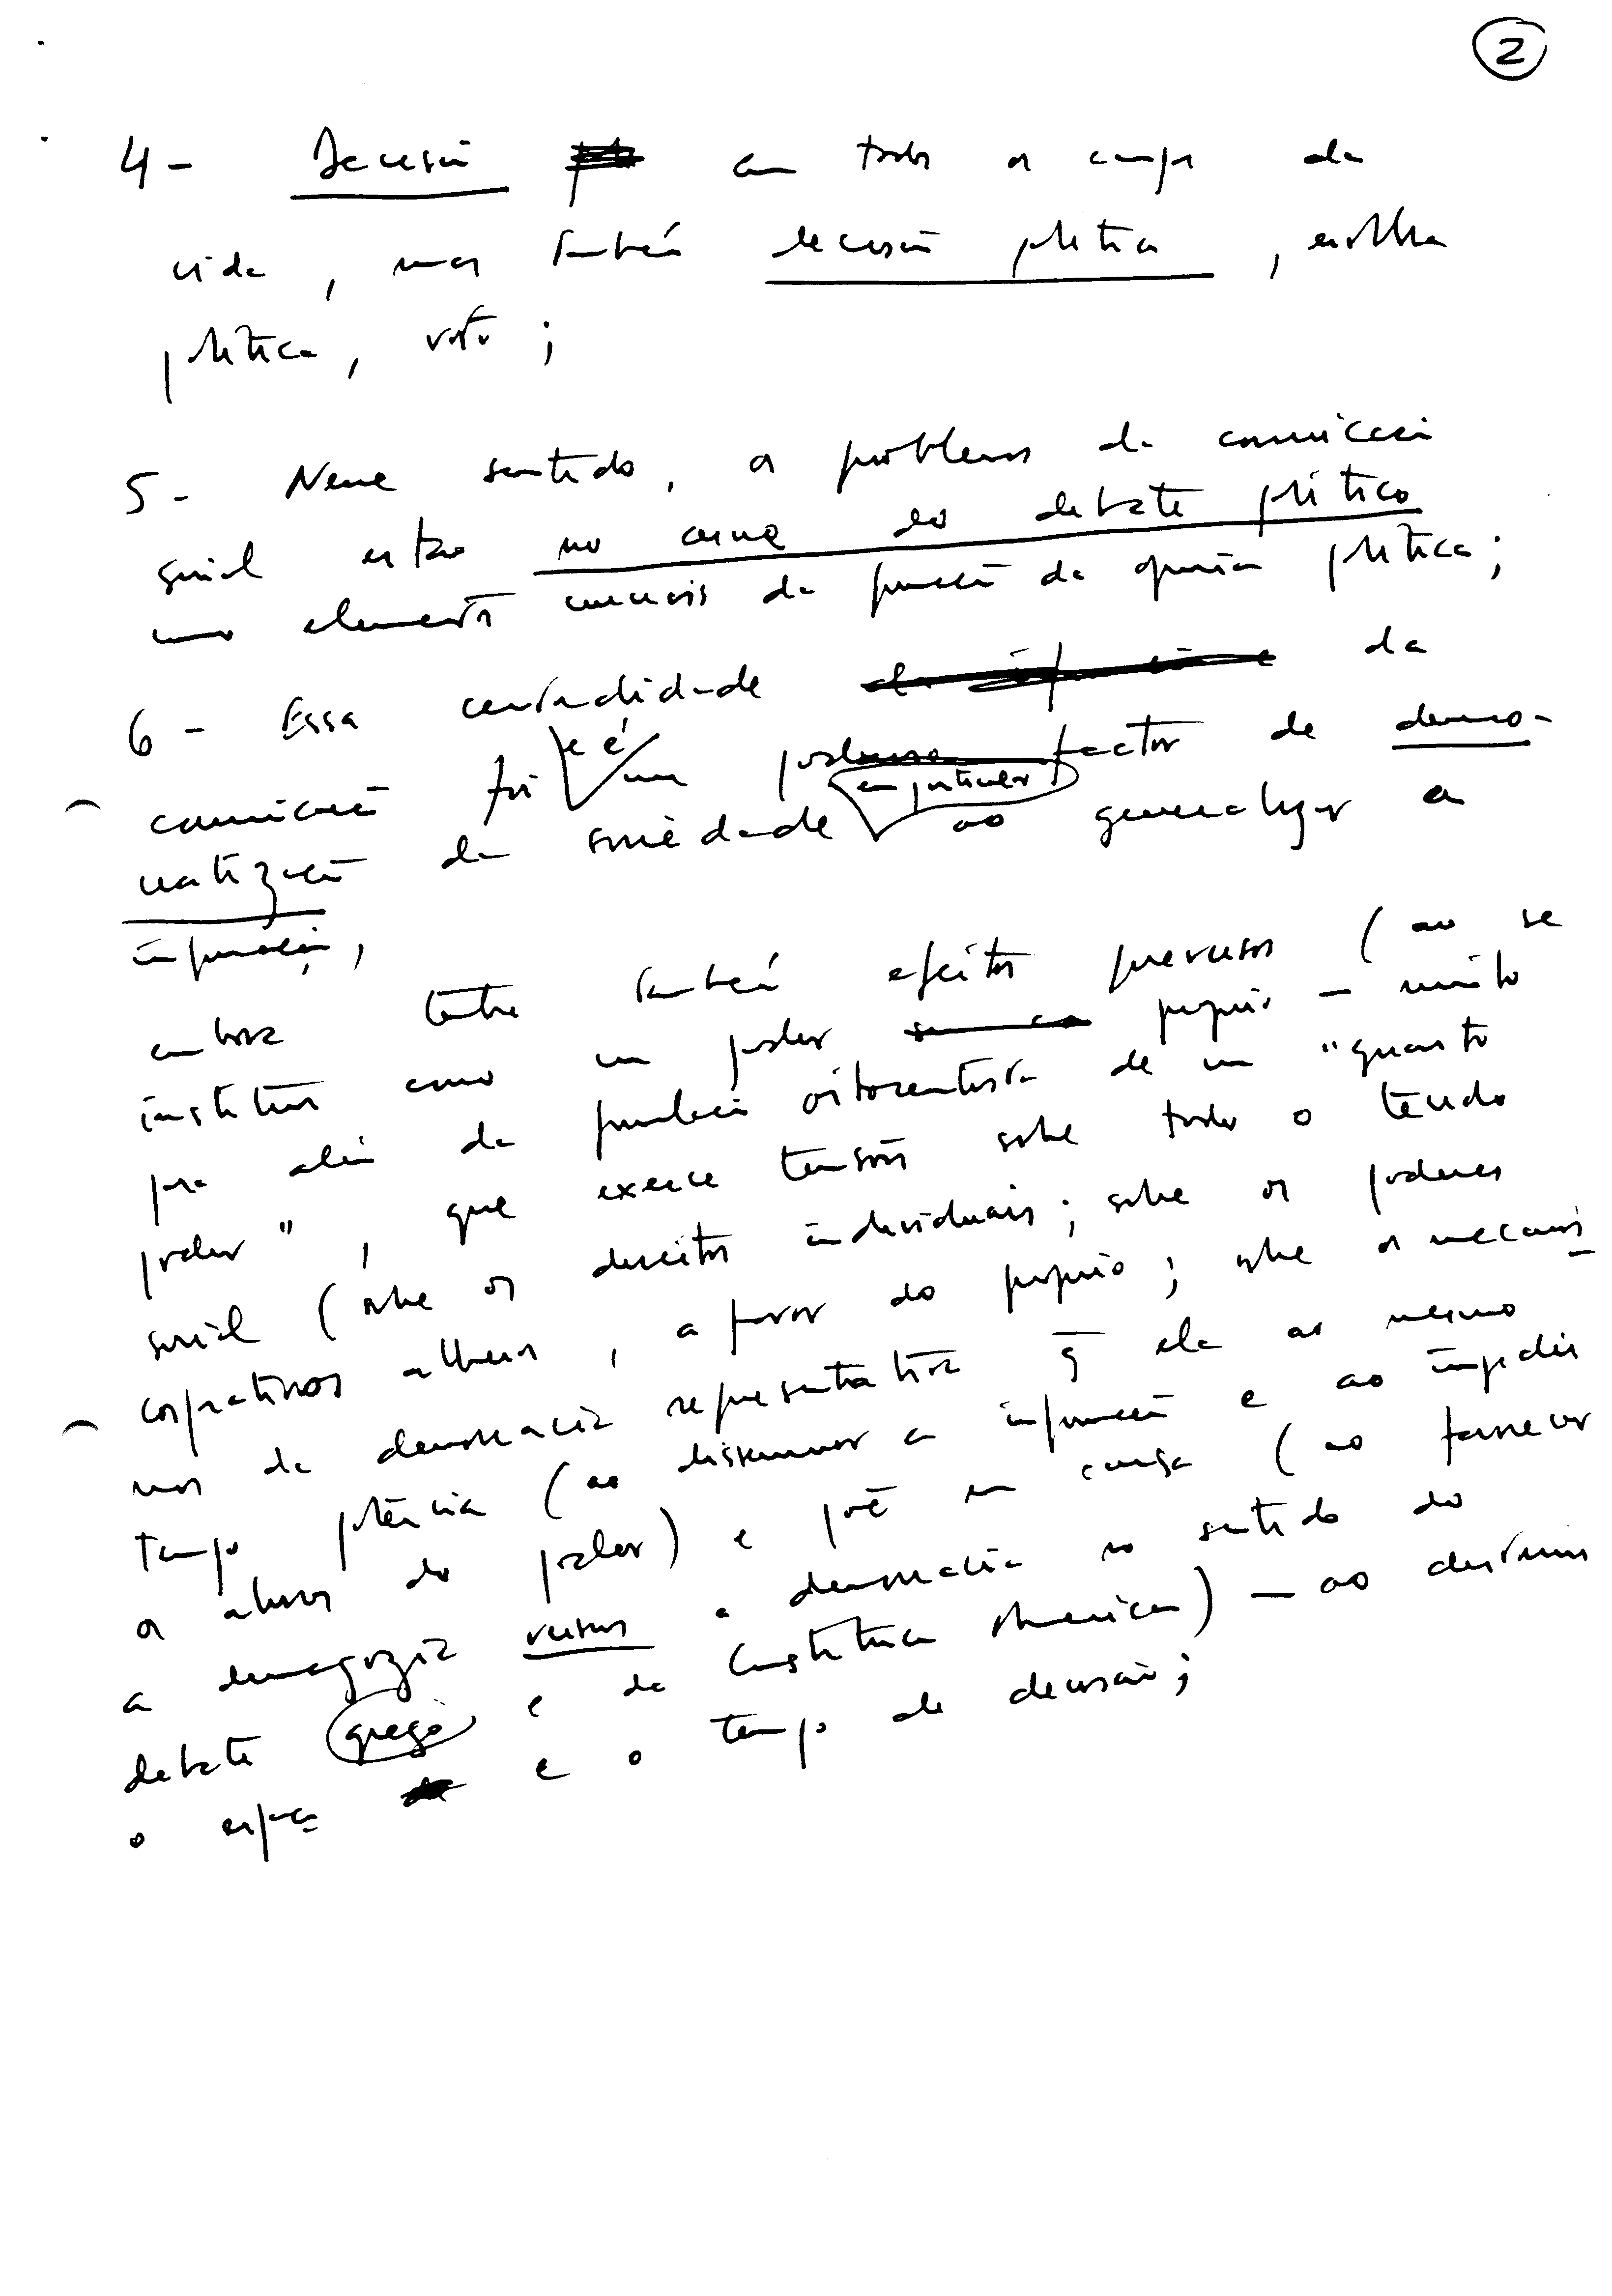 2
4 - Decisão em todos os campos da
vida, mas também decisão política, escolha
política, voto;
5 - Nesse sentido, os problemas da comunicação
social estão no cerne do debate político
como elementos cruciais da formação da opinião política;
6 - Essa centralidade da
comunicação foi e é um poderoso factor de demo-
cratização da sociedade em particular ao generalizar a
informação,
embora tenha também efeitos perversos (ao se
instituir como um poder próprio - muito
para além da formulação oitocentista de um "quarto
poder", que exerce tensões sobre todo o tecido
social (sobre os direitos individuais; sobre os poderes
corporativos alheios, a favor do próprio; sobre os mecanis
mos da democracia representativa q̄ ela ao mesmo
tempo potencia (ao disseminar a informação e ao impedir
os abusos do poder) e põe em causa (ao favorecer
a demagogia versus a democracia no sentido do
debate grego e da Constituição Americana) - ao destruir
o espaço e o tempo de decisão;